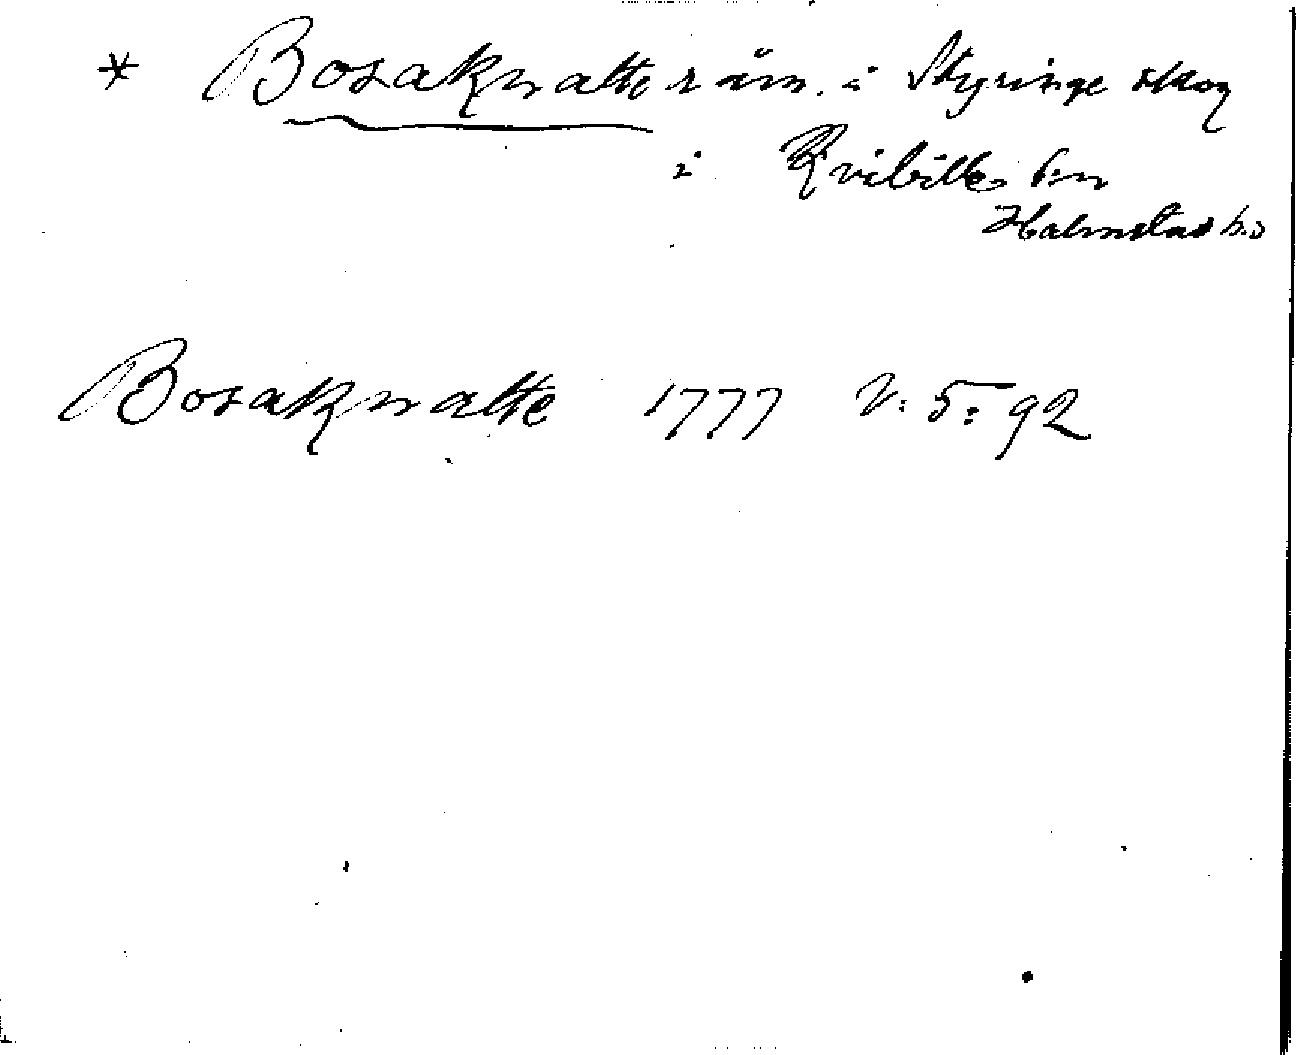 * Bosaknatte r äm. i Skyringe skog
i Kvibille sn
Halmstads h:d
Bosaknatte 1777 V: 5: 92